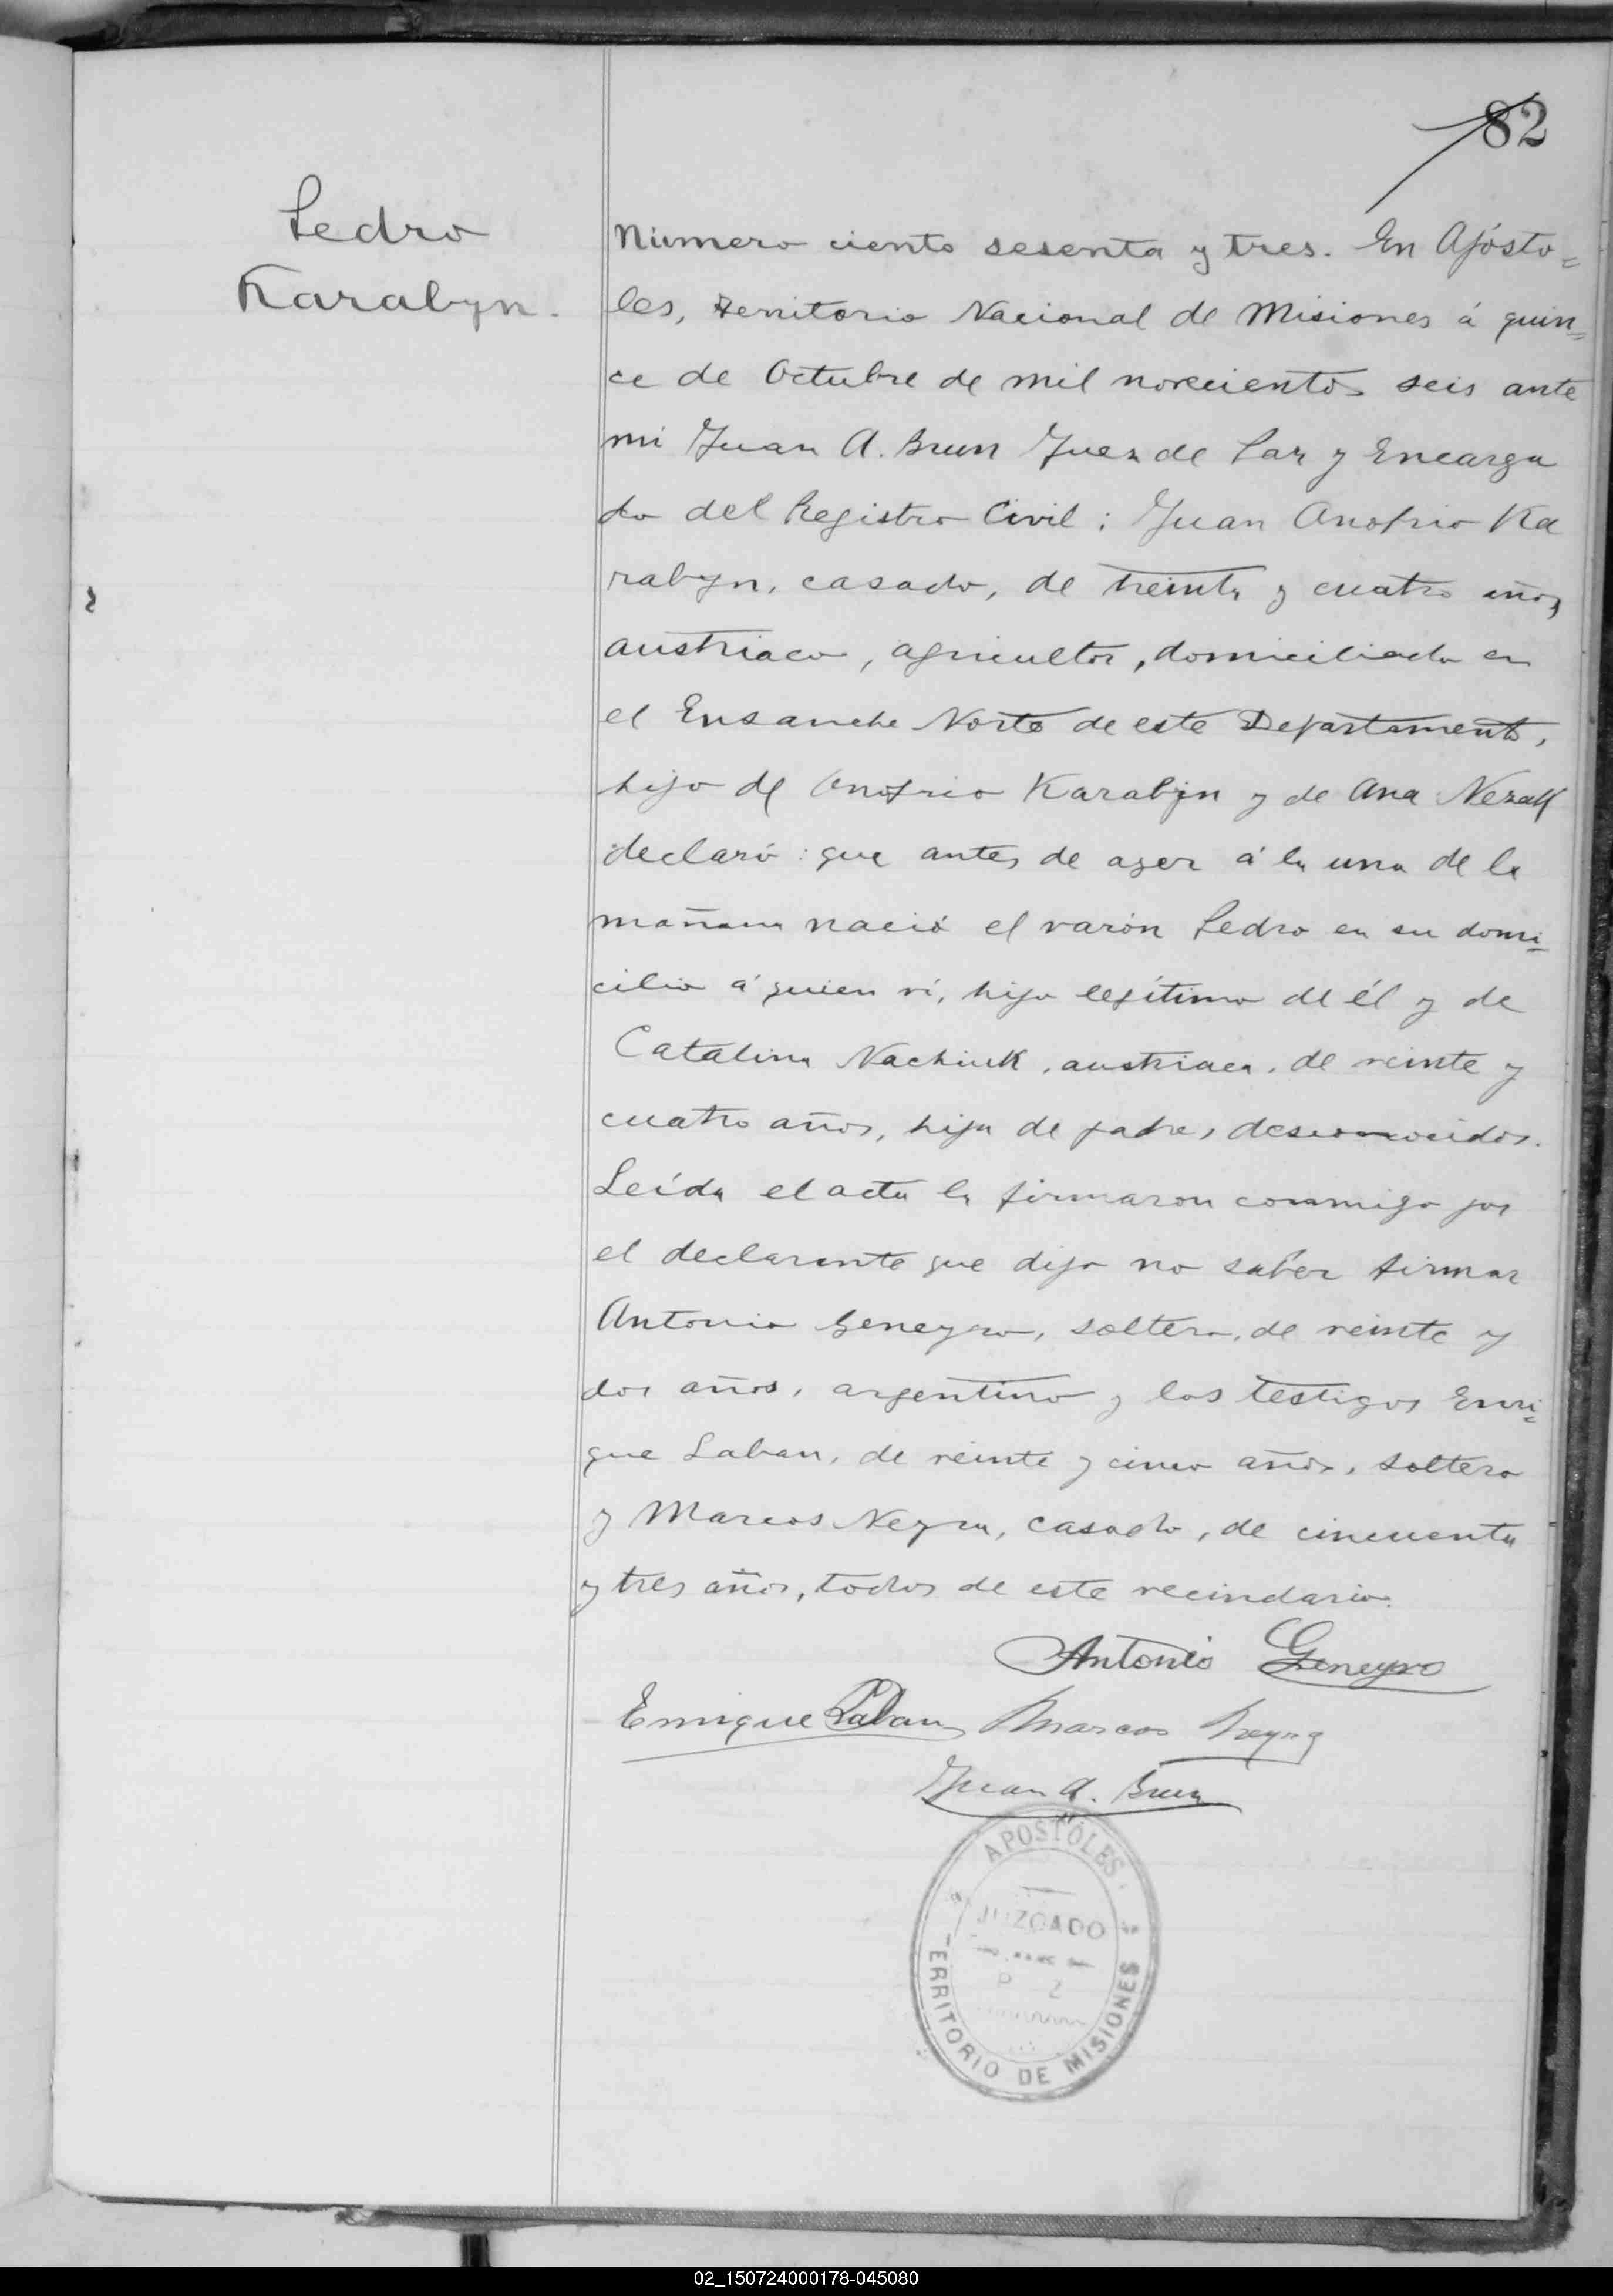 82
Pedro
Karabyn.
Número ciento sesenta y tres. En Apósto=
les, Territorio Nacional de Misiones á quin=
ce de Octubre de mil novecientos seis ante
mi Juan A. Brun Juez de Paz y Encarga
do del Registro Civil: Juan Anofrio Ka
rabyn, casado, de treinta y cuatro años,
austriaco, agricultor, domiciliado en
el Ensanche Norte de este Departamento,
hijo de Onofrio Karabyn y de Ana
declaró: que antes de ayer á la una de la
mañana nació el varón Pedro en su domi=
cilio á quien ví, hijo legítimo de él y de
Catalina Nachiuk, austriaca, de veinte y
cuatro años, hija de padres desconocidos.
Leída el acta la firmaron conmigo por
el declarante que dijo no saber firmar
Antonio Geneyro, soltero, de veinte y
dos años, argentino y los testigos Enri=
que Laban, de veinte y cinco años, soltero
y Marcos Neyra, casado, de cincuenta
y tres años, todos de este vecindario.
Antonio Geneyro
Enrique Laban Marcos Neyra
Juan A. Brun
APOSTOLES
JUZGADO
P Z
TERRITORIO DE MISIONES
02_150724000178-045080